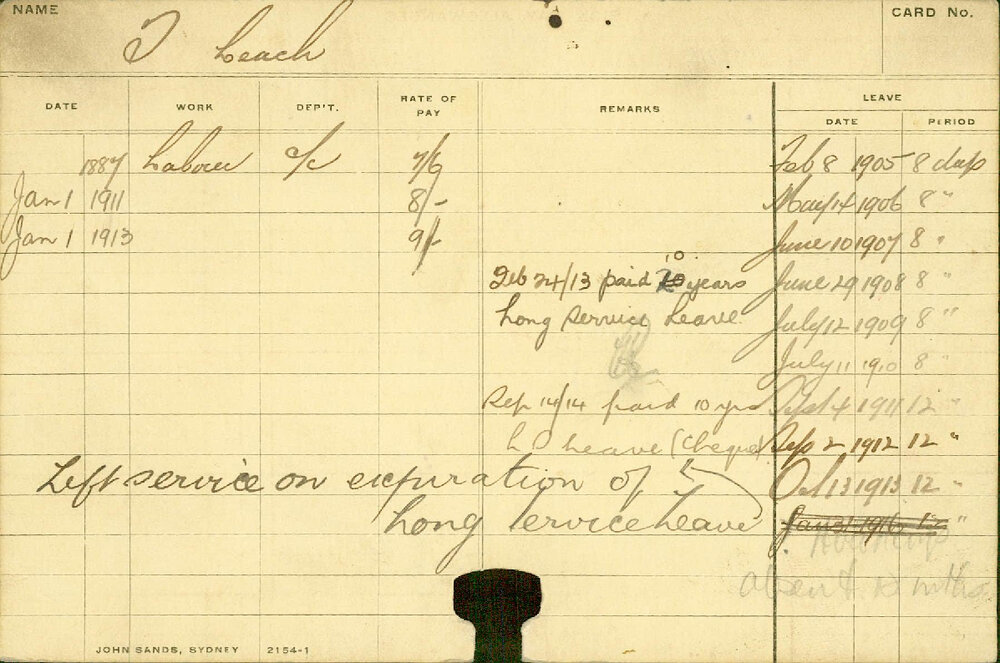 NAME
T Leach
CARD No.
DATE WORK DEP'T. RATE OF PAY REMARKS LEAVE
DATE PERIOD
1887 Labour c/c 7/6 Feb 8 1905 8 days
Jan 1 1911 8/- May 14 1906 8 "
Jan 1 1913 9/- June 10 1907 8 "
Feb 24/13 paid 10 years June 29 1908 8 "
Long Service Leave July 12 1909 8 "
July 11 1910 8 "
Sep 14/14 paid 10 yrs Sept 4 1911 12 "
L S Leave (Cheque) Sep 2 1912 12 "
Left service on expiration of Oct 13 1913 12 "
Long Service Leave Jan 31 1916 12 "
absent 12 mths
JOHN SANDS, SYDNEY 2154-1